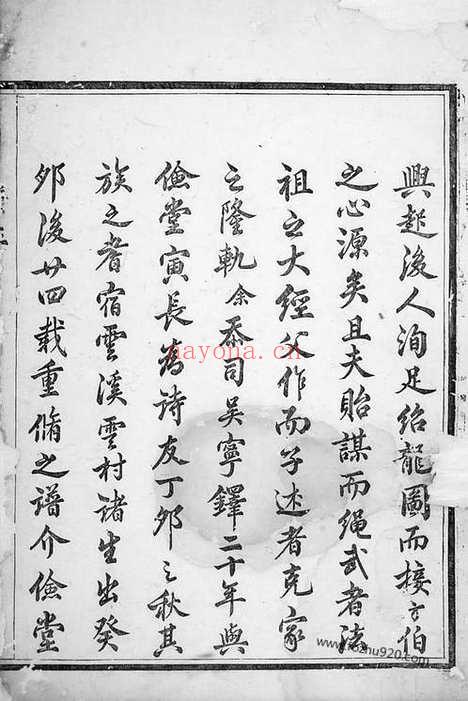 興起後人洵足紹龍圖而接方伯
之心源矣且夫貽謀而绳武者法
祖之大經父作而子述者克家
之隆軌余忝司吳寧鐸二十年與
儉堂寅長為詩友丁夘之秋其
族之耆宿雲溪雪村諸生出癸
夘後廿四载重脩之譜介儉堂
nayona.cn
www.fozhu920.com